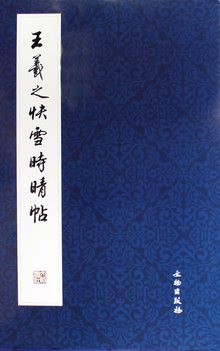 王羲之快雪時晴帖
文物出版社